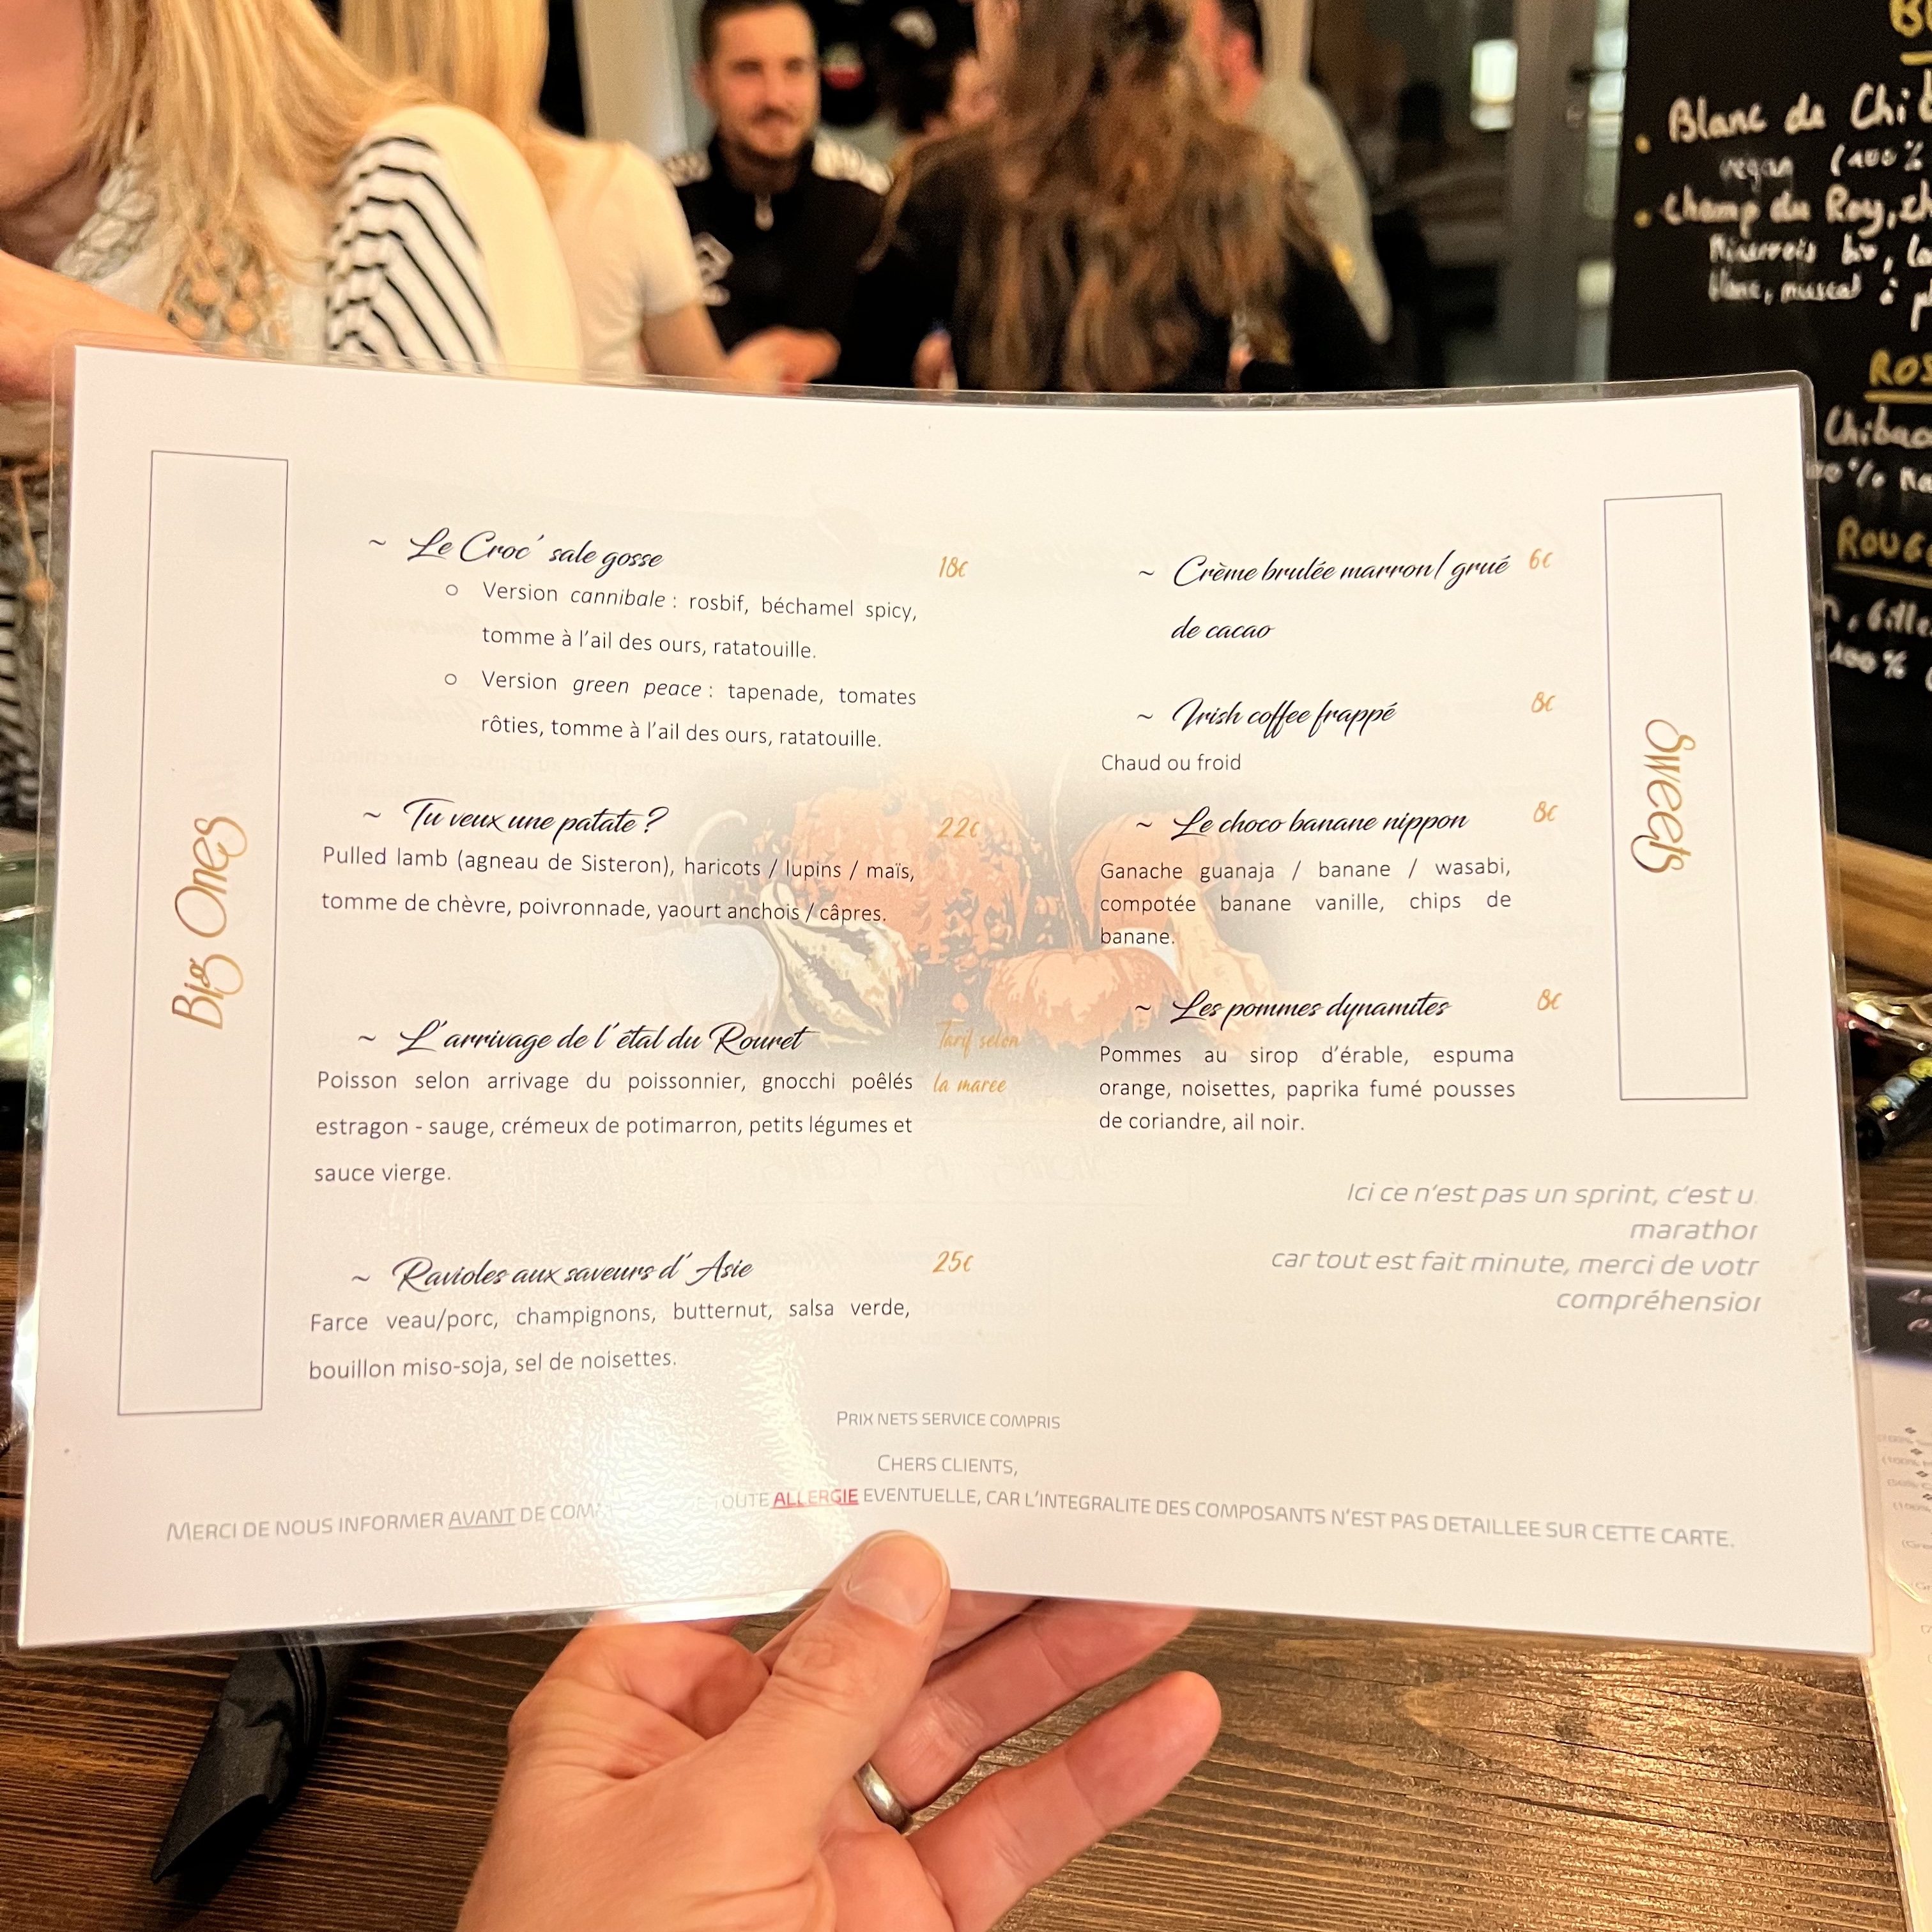 Big Ones
~ Le Croc' sale gosse 18€
○ Version cannibale : rosbif, béchamel spicy,
tomme à l'ail des ours, ratatouille.
○ Version green peace : tapenade, tomates
rôties, tomme à l'ail des ours, ratatouille.
~ Tu veux une patate ? 22€
Pulled lamb (agneau de Sisteron), haricots / lupins / maïs,
tomme de chèvre, poivronnade, yaourt anchois / câpres.
~ L'arrivage de l'étal du Rouret Tarif selon
Poisson selon arrivage du poissonnier, gnocchi poêlés la marée
estragon - sauge, crémeux de potimarron, petits légumes et
sauce vierge.
~ Ravioles aux saveurs d'Asie 25€
Farce veau/porc, champignons, butternut, salsa verde,
bouillon miso-soja, sel de noisettes.
Sweets
~ Crème brulée marron/ grué 6€
de cacao
~ Irish coffee frappé 8€
Chaud ou froid
~ Le choco banane nippon 8€
Ganache guanaja / banane / wasabi,
compotée banane vanille, chips de
banane.
~ Les pommes dynamites 8€
Pommes au sirop d'érable, espuma
orange, noisettes, paprika fumé pousses
de coriandre, ail noir.
Ici ce n'est pas un sprint, c'est u
marathon
car tout est fait minute, merci de votr
compréhension
PRIX NETS SERVICE COMPRIS
CHERS CLIENTS,
MERCI DE NOUS INFORMER AVANT DE COMM TOUTE ALLERGIE EVENTUELLE, CAR L'INTEGRALITE DES COMPOSANTS N'EST PAS DETAILLEE SUR CETTE CARTE.
Blanc de Chi
vegan (100%
Champ du Roy,
bio,
blanc, muscat à
ROS
Chibao
ROUG
100%